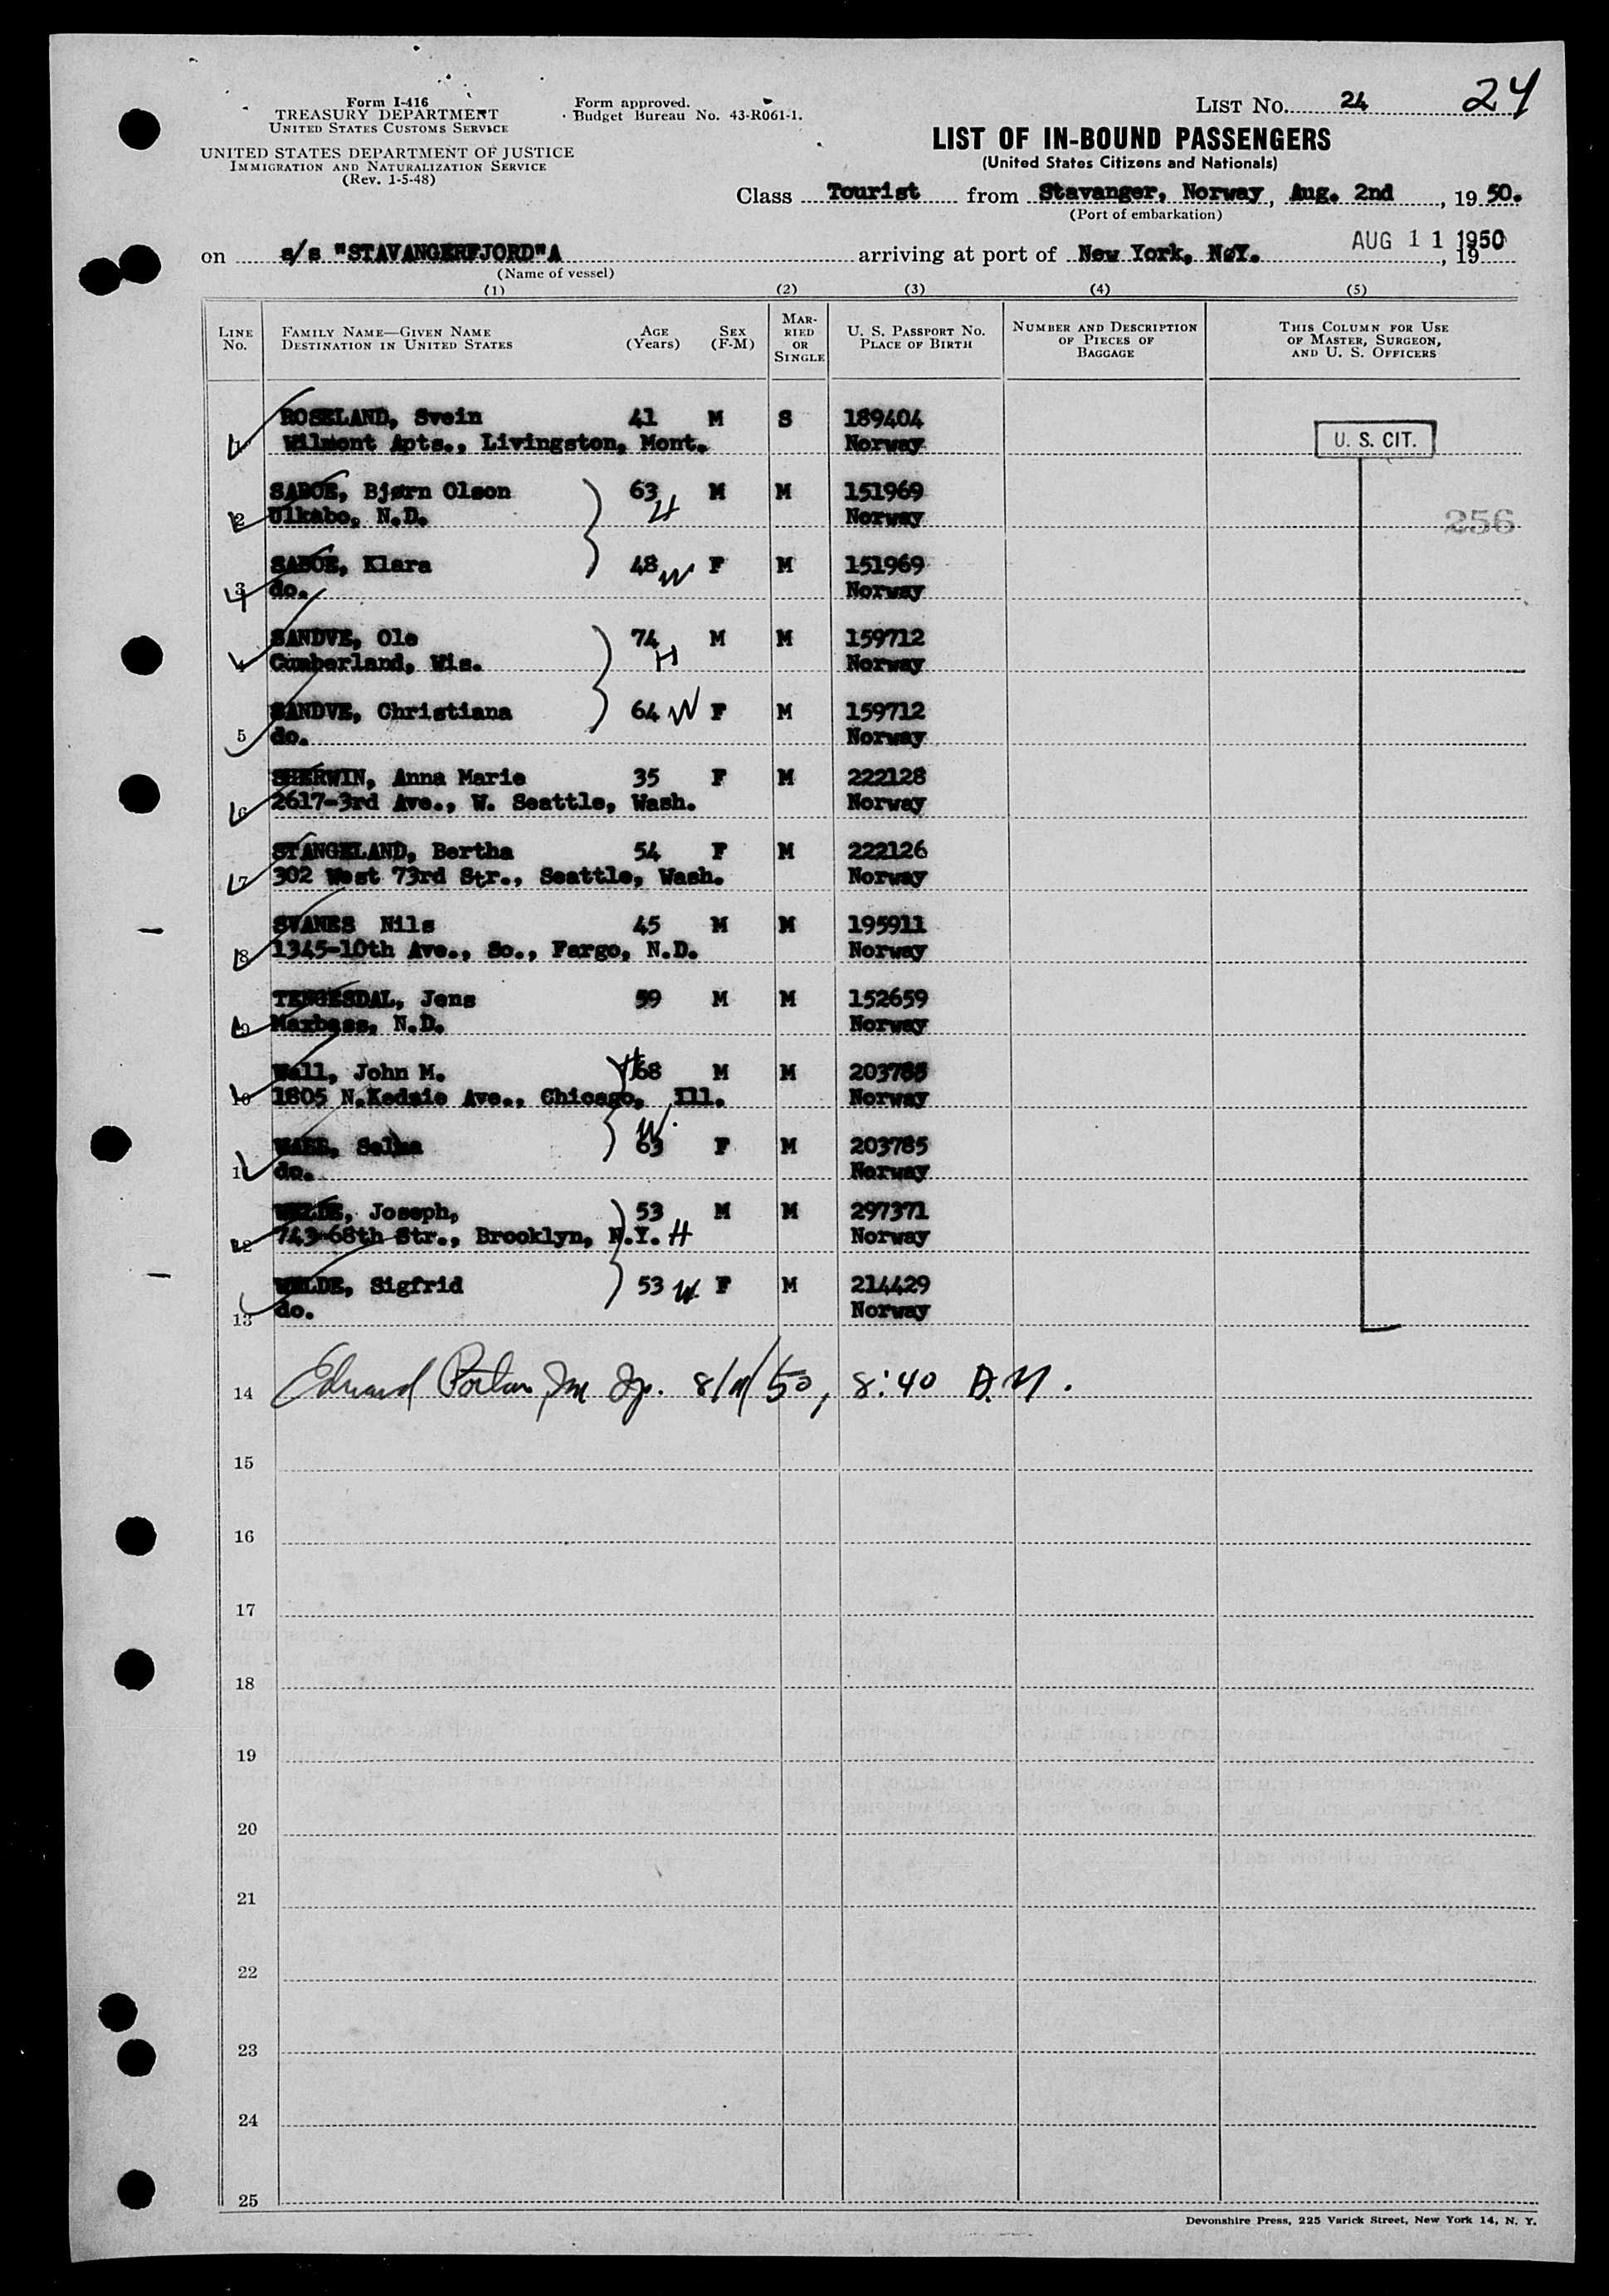 Form I-416
TREASURY DEPARTMENT
UNITED STATES CUSTOMS SERVICE
UNITED STATES DEPARTMENT OF JUSTICE
IMMIGRATION AND NATURALIZATION SERVICE
(Rev. 1-5-48)
Form approved.
Budget Bureau No. 43-R061-1.
LIST No. 24 24
LIST OF IN-BOUND PASSENGERS
(United States Citizens and Nationals)
Class Tourist from Stavanger, Norway, Aug. 2nd, 1950.
(Port of embarkation)
on s/s "STAVANGERFJORD"A arriving at port of New York, N.Y. AUG 11 1950, 19
(Name of vessel)
(1) (2) (3) (4) (5)
LINE No. FAMILY NAME—GIVEN NAME DESTINATION IN UNITED STATES AGE (Years) SEX (F-M) MARRIED OR SINGLE U. S. PASSPORT NO. PLACE OF BIRTH NUMBER AND DESCRIPTION OF PIECES OF BAGGAGE THIS COLUMN FOR USE OF MASTER, SURGEON, AND U. S. OFFICERS
ROSELAND, Svein 41 M S 189404
1 Wilmont Apts., Livingston, Mont. Norway
U. S. CIT.
SABOE, Bjørn Olson 63 H M M 151969
2 Ulkabo, N.D. Norway
256
SABOE, Klara 48 W F M 151969
3 do. Norway
SANDVE, Ole 74 H M M 159712
4 Cumberland, Wis. Norway
SANDVE, Christiana 64 W F M 159712
5 do. Norway
SHERWIN, Anna Marie 35 F M 222128
6 2617-3rd Ave., W. Seattle, Wash. Norway
STANGELAND, Bertha 54 F M 222126
7 302 West 73rd Str., Seattle, Wash. Norway
SVANES Nils 45 M M 195911
8 1345-10th Ave., So., Fargo, N.D. Norway
TENGESDAL, Jens 59 M M 152659
9 Maxbass, N.D. Norway
Wall, John M. H 68 M M 203785
10 1805 N.Kedzie Ave., Chicago, Ill. Norway
Selma W. 63 F M 203785
11 do. Norway
WELDE, Joseph, 53 M M 297371
12 743-68th Str., Brooklyn, N.Y. H Norway
WELDE, Sigfrid 53 W F M 214429
13 do. Norway
14 Edward 8/11/50, 8:40 A.M.
15
16
17
18
19
20
21
22
23
24
25
Devonshire Press, 225 Varick Street, New York 14, N. Y.